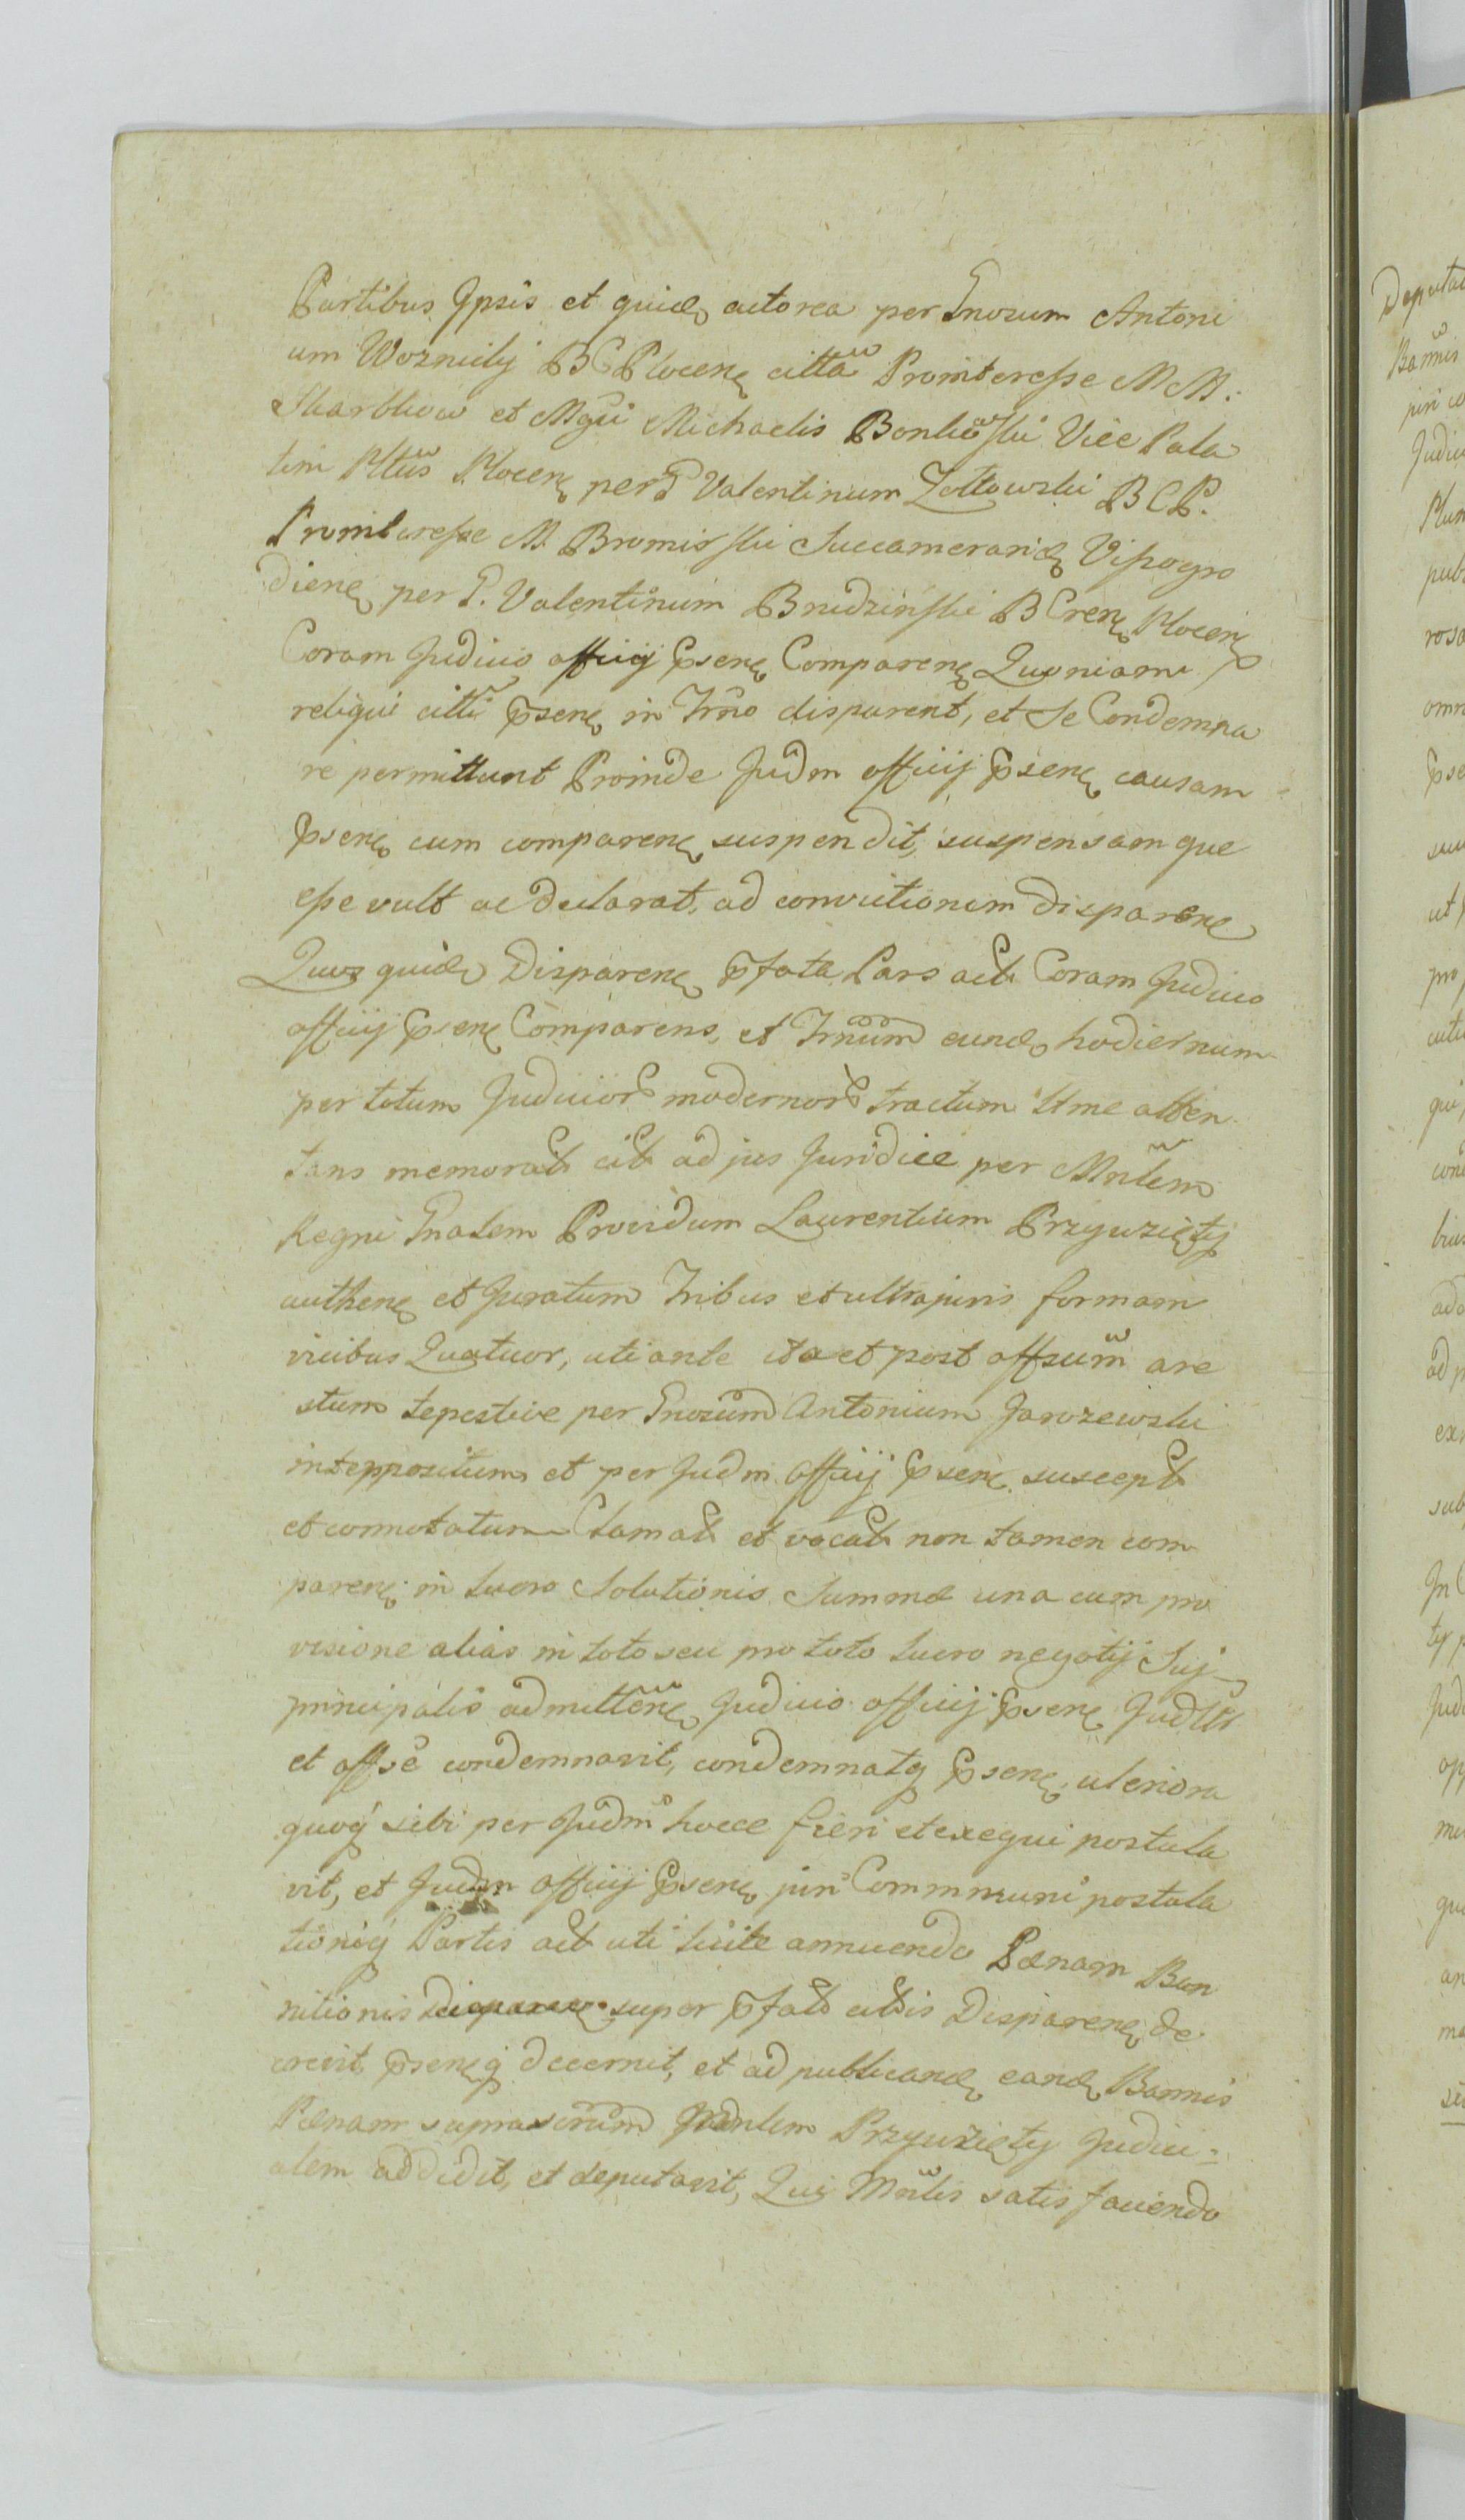 Partibus Ipsis et quid actorea per Gnosum Antoni
um Woznicki BC Plocen citta Prointeresse M M:
Skarbkow et Mgci Michaelis Bonkowski Vice Pala
tini Pltus Plocen per G Valentinum Zołtowski BCP.
Prointeresse M. Bromirski Succamerarid Vissogro
dien per G. Valentinum Brudzinski BCren Plocen
Coram Judicio officij Psen Comparen Quoniam
reliqui citti Psen in Trno disparent, et se Condemna
re permittunt Proinde Judm officij Psen causam
Psen cum comparen suspendit, suspensamque
esse vult ac declarat, ad convictionem disparen
Quos quid Disparen Pfata Pars act Coram Judicio
officij Psen Comparens, et Trnum eund hodiernum
per totum Judicior modernor tractum ltme atten
tans memorat cit ad jus Juridice per Mnlem
Regni Gnalem Providum Laurentium Przywzięty
authen et Juratum Tribus et ultra juris formam
vicibus Quatuor, uti ante ita et post offsum are
stum tepestive per Gnosum Antonium Jarozewski
inteppositum et per Judm officij Psen suscept
et connotatum Clamat et vocat non tamen com
paren in lucro Solutionis Summae una cum pro
visione alias in toto seu pro toto lucro negotij Suj
principalis admitten Judicio officij Psen Judltr
et offse condemnavit, condemnatq Psen, ulteriora
quoq sibi per Judm hocce fieri et exequi postula
vit, et Judm officij Psen juri Commmuni postula
tioniq Partis act uti licite annuendo Paenam Ban
nitionis super Pfat citis Disparen de
crevit, Psenq decernit, et ad publicand eand Bannis
Paenam suprascrium Mnlem Przywzięty Judici=
alem addidit, et deputavit, Qui Mnlis satis faciendo